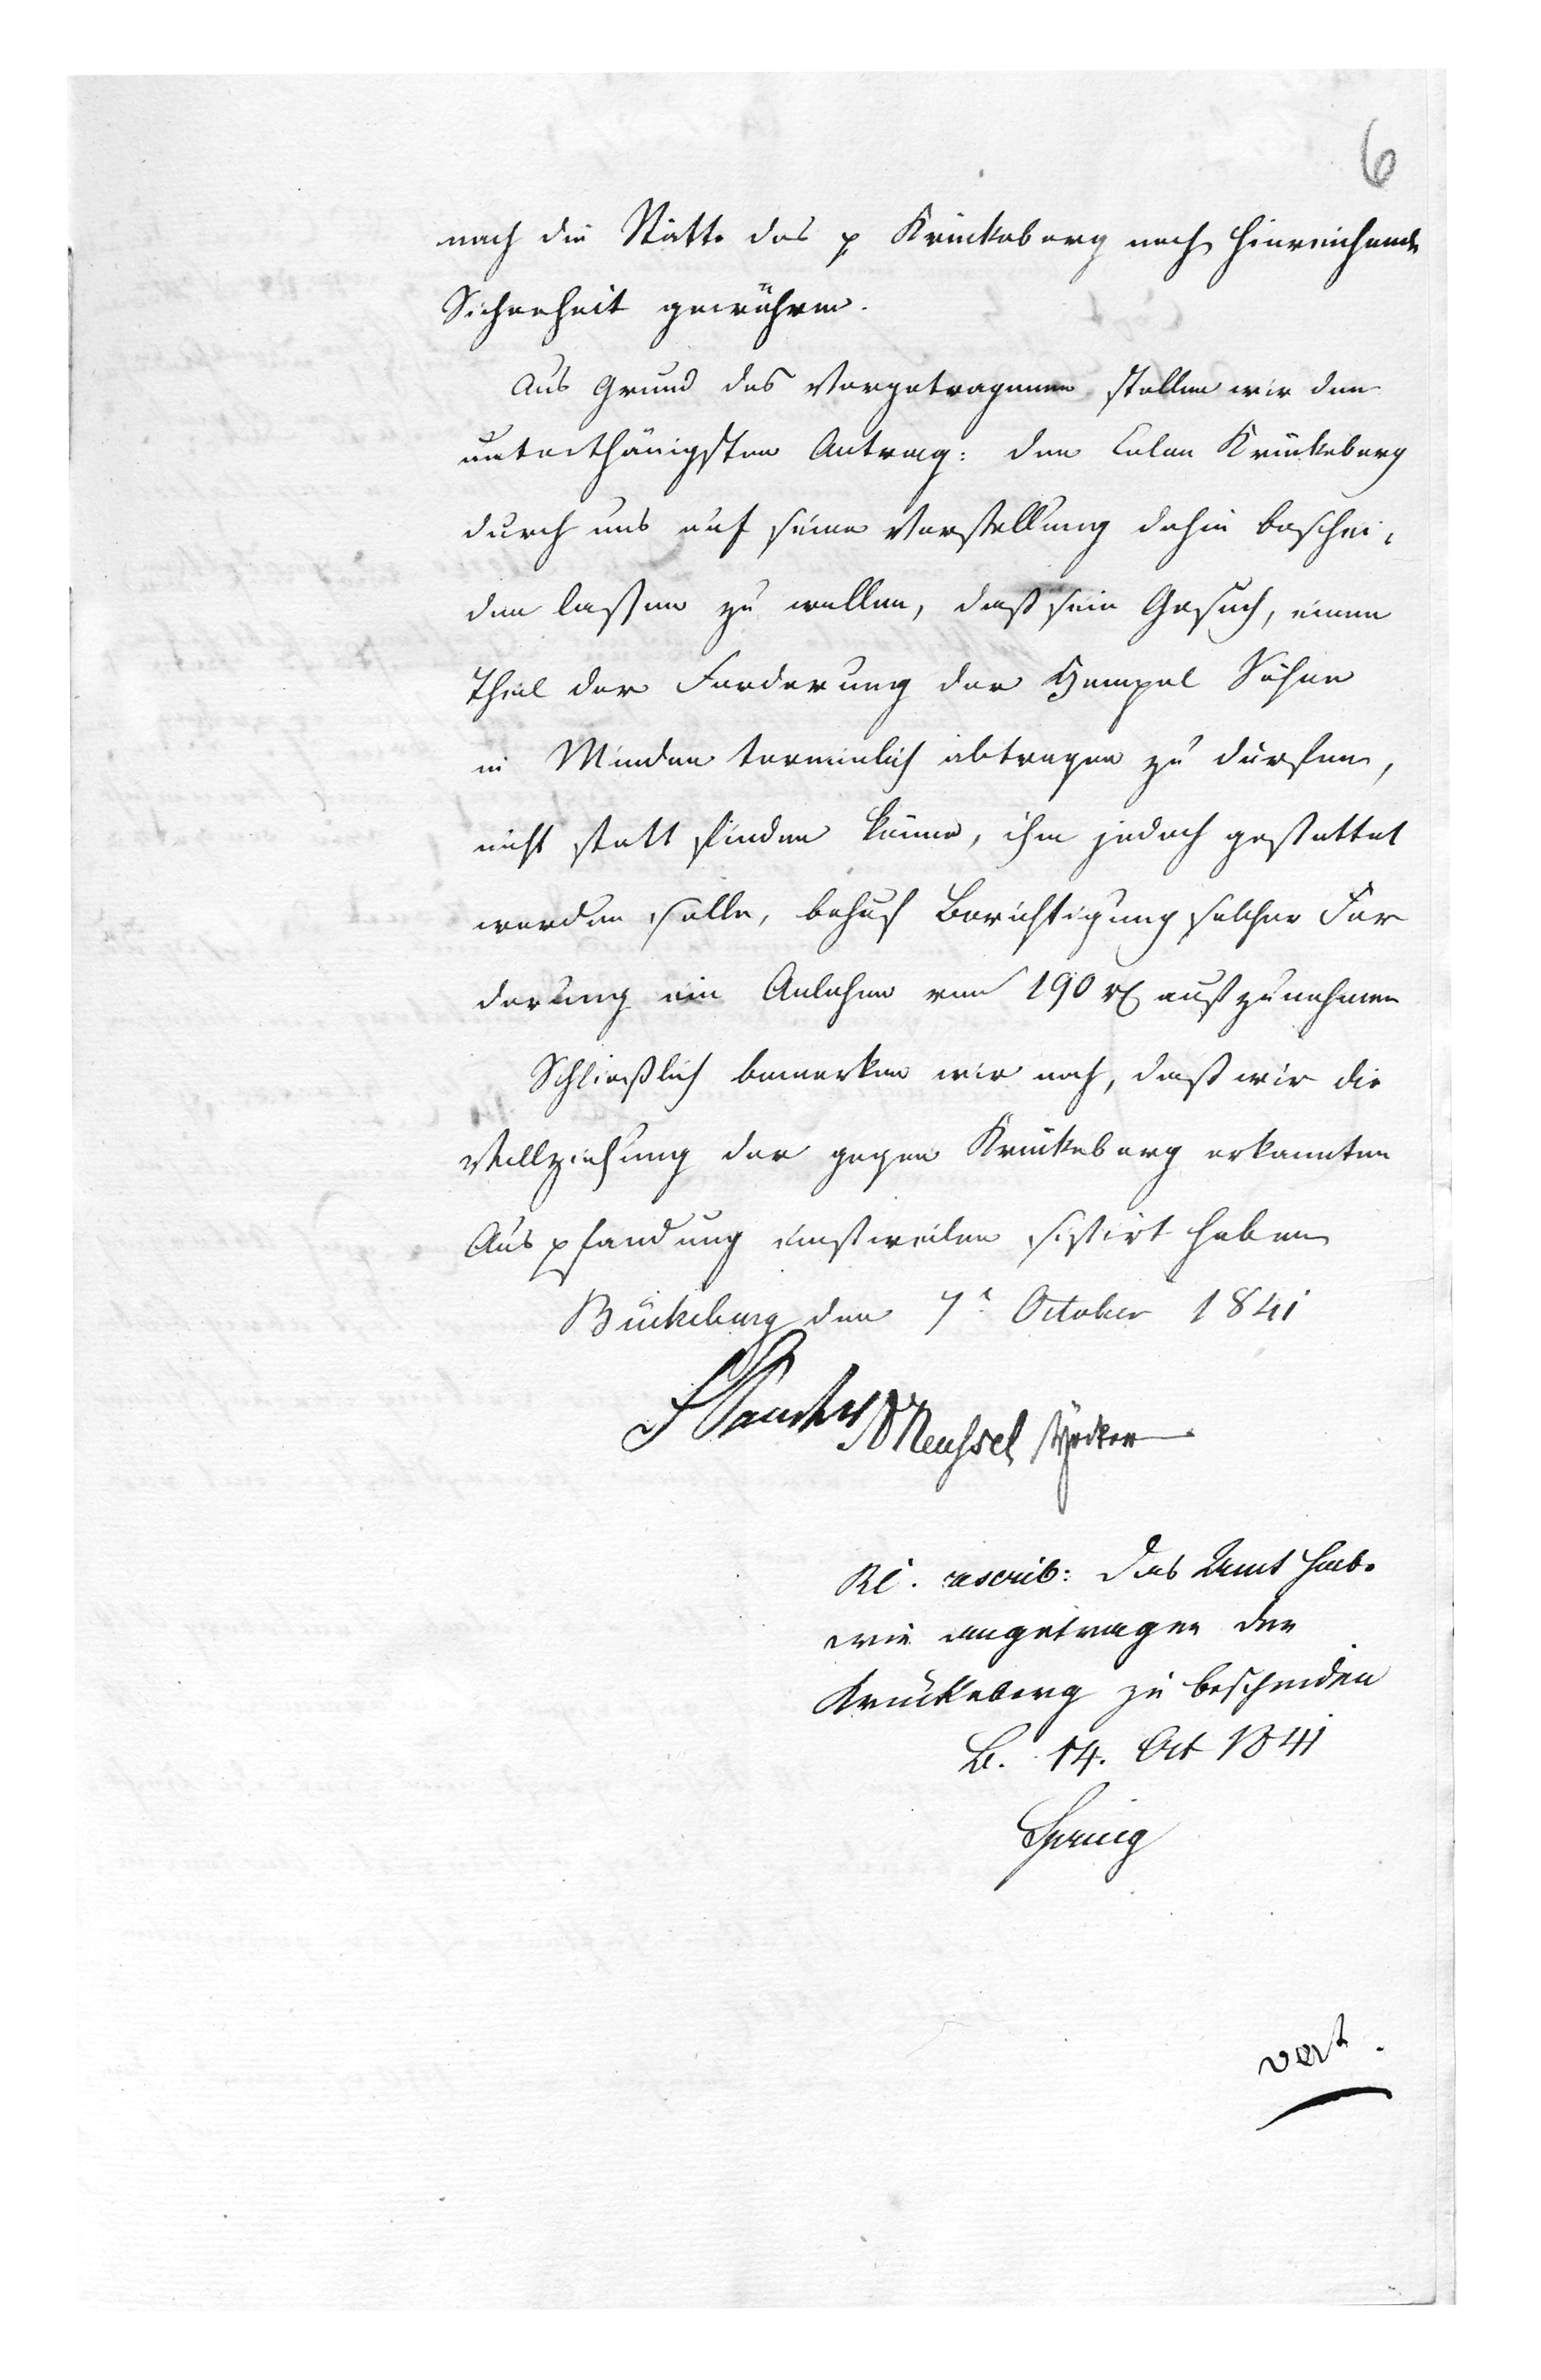 6
nach die Stätte des p Krückeberg noch hinreichende
Sicherheit gewähren.
Aus Grund des Vorgetragenen stellen wir den
unterthänigsten Antrag: den Colon Krückeberg
durch uns auf seine Vorstellung dahin beschei-
den laßen zu wollen, daß sein Gesuch, einen
Theil der Forderung der Hempel Söhne
in Minden terminlich abtragen zu dürfen,
nicht statt finden könne, ihm jedoch gestattet
werden solle, behuf Berichtigung solcher For
derung ein Anlehen von 190 rℓ aufzunehmen
Schließlich bemerken wir noch, daß wir die
Vollziehung der gegen Krückeberg erkannten
Auspfandung einstweilen sistirt haben
Bückeburg den 7t October 1841
Meussel
rescrib: das Amt habe
wie angetragen den
Krückeberg zu bescheiden
B. 14. Oct 1841
Spring
vert.